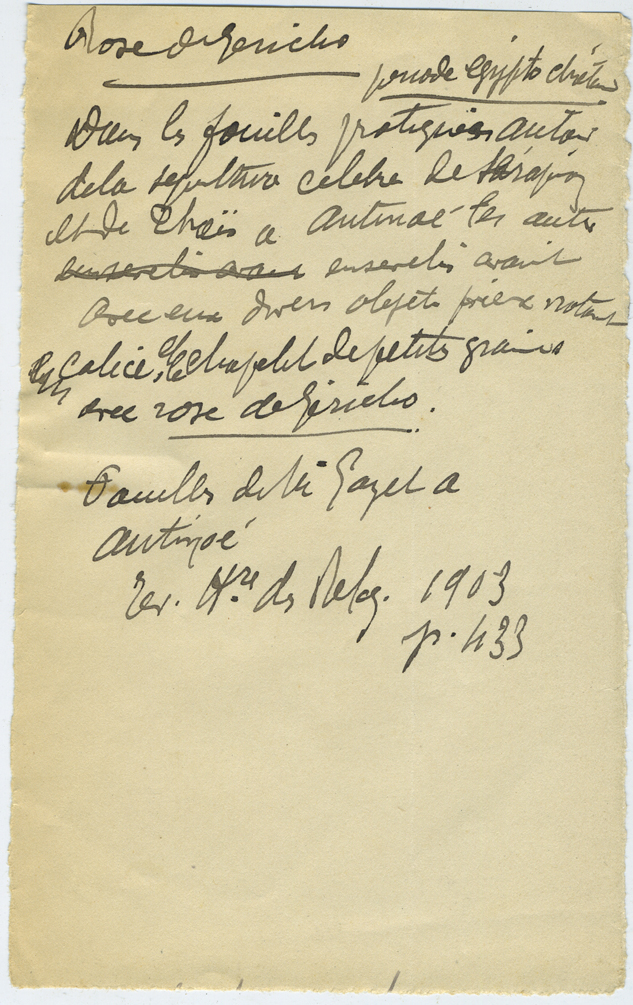 Rose de Jericho
periode égypto chrétien
Dans les fouilles pratiquées autour
de la sepulture celebre de Sérapion
et de Thaïs a Antinoé les autres
ensevelis avaient ensevelis avait
avec eux divers objets pieux notant
calice, et chapelet de petits grains
avec rose de Jéricho.
Fouilles de Mr Gayet a
Antinoé
Rev. Hre des Relig. 1903
p. 433